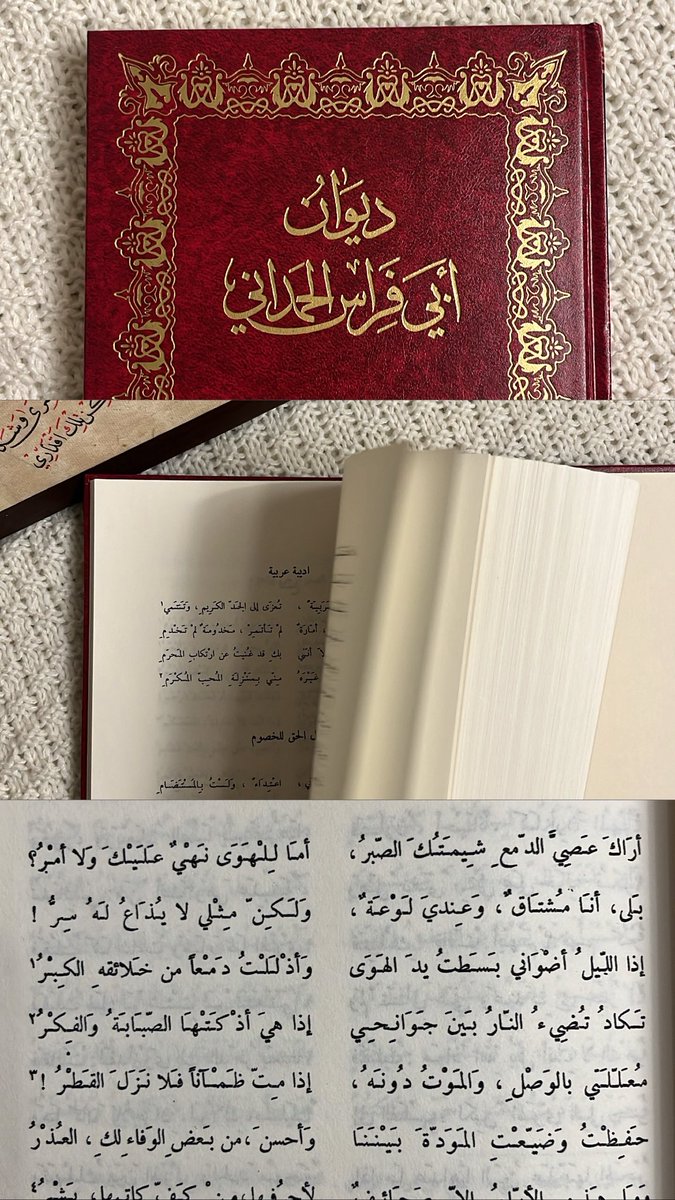 ديوَانُ
أبي فِرَاس الحَمَداني
ادبية عربية
تُعزَى إلى الجَدّ الكَريمِ، وَتَنتَمي١
أمَارَةٌ، لمْ تَأتَمِرْ، مَخدُومَةٌ لمْ تَخدِمِ
أنّني بكِ قد غُنيتُ عن ارْتكابِ المَحرَمِ
غَيرَهُ مِنّي بِمَنْزِلَةِ المُحِبّ المُكْرَمِ٢
الحق للخصوم
اعتِداءً، وَلَستُ بِالمُستَضَامِ
أرَاكَ عَصِيَّ الدّمعِ شِيمَتُكَ الصّبرُ، أمَا لِلْهَوَى نَهْيٌ عَلَيْكَ وَلا أمْرُ؟
بلى، أنَا مُشتَاقٌ، وَعِنديَ لَوْعَةٌ، وَلَكِنّ مِثْلي لا يُذَاعُ لَهُ سِرُّ !
إذا اللّيلُ أضْوَاني بَسَطتُ يدَ الهَوَى وَأذْلَلْتُ دَمْعاً من خَلائقهِ الكِبْرُ١
تَكادُ تُضِيءُ النّارُ بَينَ جَوَانِحِي إذا هيَ أذْكَتْهَا الصّبَابَةُ وَالفِكْرُ٢
مُعَلّلَتي بالوَصْلِ، وَالمَوْتُ دُونَهُ، إذا مِتّ ظَمْآناً فَلا نَزَلَ القَطْرُ !٣
حَفِظْتُ وَضَيّعْتِ المَوَدّةَ بَيْنَنَا وَأحسنَ، من بَعضِ الوَفاءِ لكِ، العُذْرُ